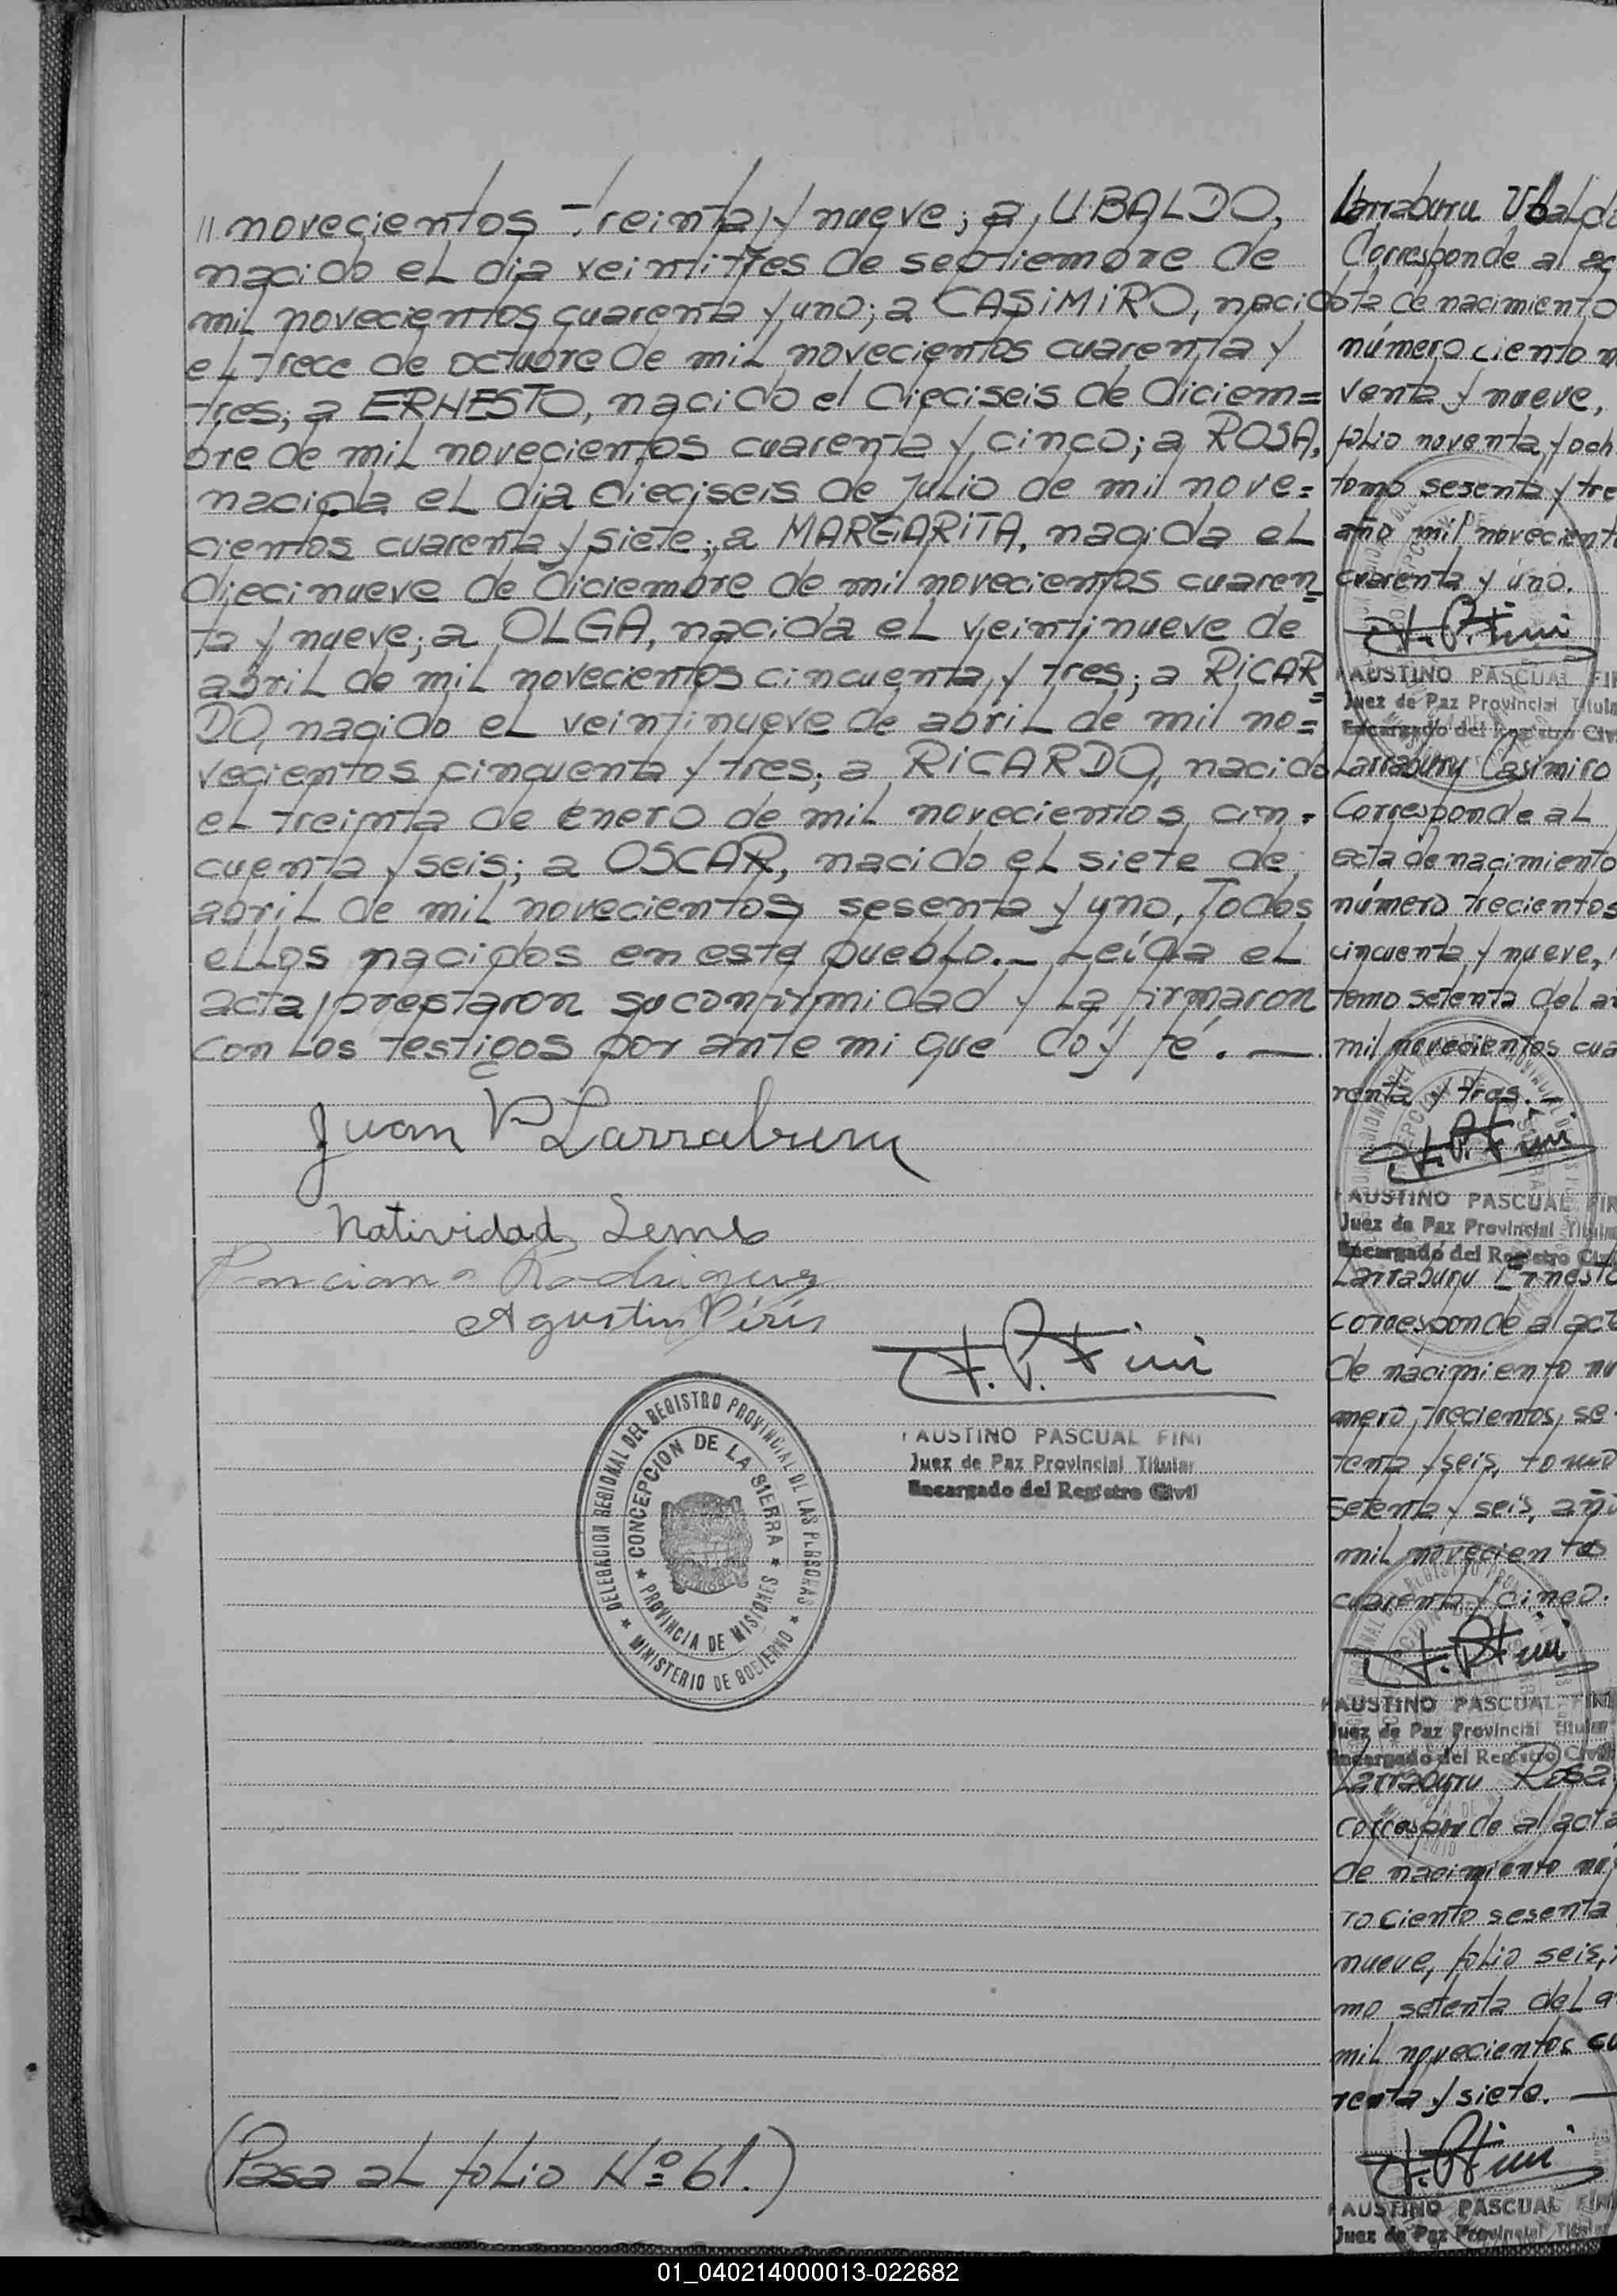 // novecientos treinta y nueve; a, UBALDO,
nacido el dia veintitres de septiembre de
mil novecientos cuarenta y uno; a CASiMiRO, nacido
el trece de octubre de mil novecientos cuarenta y
tres; a ERNESTO, nacido el dieciseis de diciem=
bre de mil novecientos cuarenta y cinco; a ROSA,
nacida el dia dieciseis de Julio de mil nove=
cientos cuarenta y siete; a MARGARiTA, nacida el
diecinueve de diciembre de mil novecientos cuaren=
ta y nueve; a OLGA, nacida el veintinueve de
abril de mil novecientos cincuenta y tres; a RiCAR=
DO, nacido el veintinueve de abril de mil no=
vecientos cincuenta y tres; a RiCARDO, nacido
el treinta de enero de mil novecientos cin=
cuenta y seis; a OSCAR, nacido el siete de
abril de mil novecientos sesenta y uno, Todos
ellos nacidos en este pueblo._ Leída el
acta prestaron su confirmidad y la firmaron
con los testigos por ante mi que doy fé. —
Juan P Larraburu
Natividad Leme
Ponciano Rodriguez
Agustin Piris
F. P. Fini
FAUSTINO PASCUAL FINI
Juez de Paz Provincial Titular
Encargado del Registro Civil
DELEGACION REGIONAL DEL REGISTRO PROVINCIAL DE LAS PERSONAS
* MINISTERIO DE GOBIERNO *
* CONCEPCION DE LA SIERRA *
PROVINCIA DE MISIONES
(Pasa al folio Nº 61.)
Larraburu Ubaldo
Corresponde al ac
ta de nacimiento
número ciento n
venta y nueve,
folio noventa y och
tomo sesenta y tre
año mil novecient
cuarenta y uno.
F. P. Fini
FAUSTINO PASCUAL FIN
Juez de Paz Provincial Titula
Encargado del Registro Civ
Larraburu Casimiro
Corresponde al
acta de nacimiento
número trecientos
cincuenta y nueve,
tomo setenta del a
mil novecientos cua
renta y tres.-
F. P. Fini
FAUSTINO PASCUAL FIN
Juez de Paz Provincial Titula
Encargado del Registro Civ
Larraburu Ernesto
corresponde al acta
de nacimiento nu
mero, trecientos, se
tenta y seis, tomo
setenta y seis, año
mil novecientos
cuarenta y cinco.
F. P. Fini
FAUSTINO PASCUAL FINI
Juez de Paz Provincial Titular
Encargado del Registro Civil
Larraburu Rosa
corresponde al acta
de nacimiento nu
ro ciento sesenta
nueve, folio seis,
mo setenta del a
mil novecientos cu
renta y siete. —
F. P. Fini
FAUSTINO PASCUAL FINI
Juez de Paz Provincial Titular
01_040214000013-022682